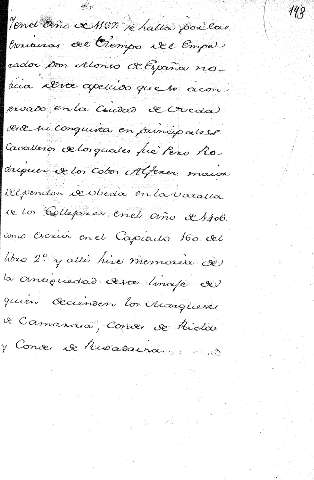 193
Yen el Año de 1137 se halla por las
escrituras del Tiempo del Empe-
rador Don Alonso de España no-
ticia deste apellido que se a con-
servado en la Ciudad de Uveda
desde su conquista en principales
Cavalleros de los quales fue Pero Ro-
driguez de los Cobos Alferez maior
del pendon de Uveda en la vatalla
de los Collejares en el año de 1406
como escrivi en el Capitulo 160 del
libro 2º y alli hice memoria de
la antiguedad deste linaje de
quien decienden los Marqueses
de Camarasa, Condes de Ricla
y Condes de Rivadavia